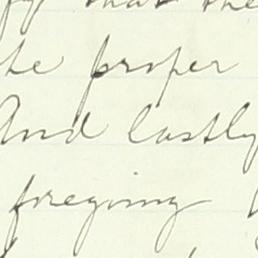 that the
the proper
And lastly
foregoing